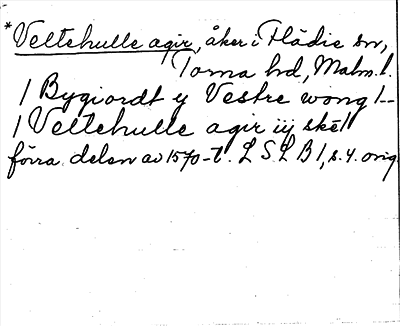 *Veltehulle agir, åker i Flädie sn,
Torna hd, Malm. l.
/ Bygiordt y Vestre wong /--
/ Veltehulle agir iij skel
förra delen av 1570-t. LSLB 1, s. 4. orig